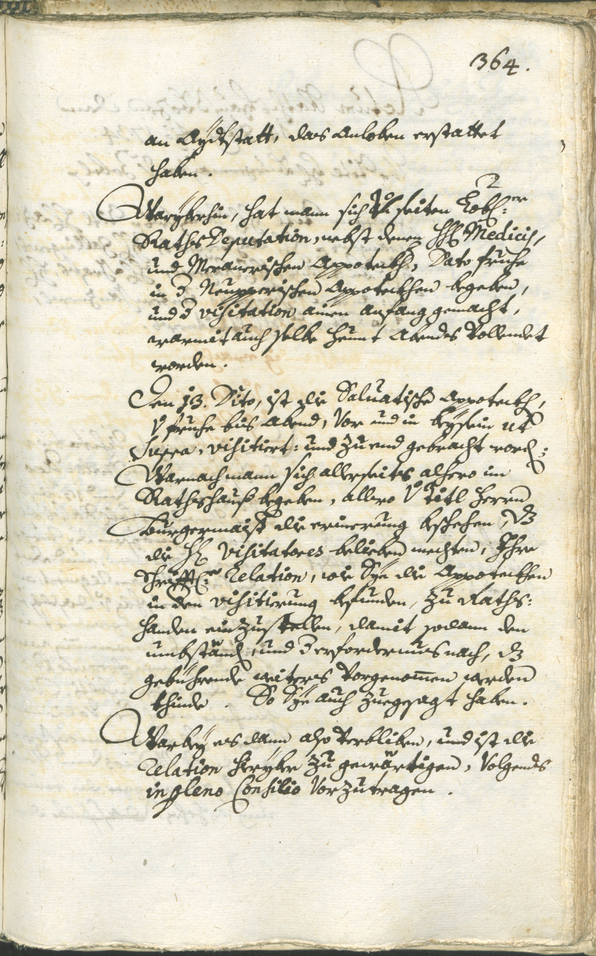 364.
an Aydtstatt, das Anloben erstattet
haben.
Waryberhin, hat mann sich seiten Löbl:
Raths Deputation, nebst denen HH Medicis,
und Meranerischen Appoteckh, Dato fruhe
in Neupperischen Appotekhen begeben,
und visitation ainen anfang gemacht,
warmit auch selbe heunt Abendts Vollendet
worden.
Den 13. Dito, ist die Saluatische Appoteckh,
fruhe bis Abend, Vor und in beysein ut
supra, visitiert: und zu end gebracht word:
Warnach mann sich allerseits alhero in
Rathshauß begeben, allwo Titl Herrn
Burgermaist die erinerung beschehen, dz
die HH Visitatores belieben mechten, Ihre
schrifftl: Relation, wie Sye die Appotecken
in den visitirung befunden, zu Raths:
handen einzustellen, damit sodann den
umbständ, und erfordernus nach, dz
gebührende weiteres Vorgenommen werden
khünde. So Sye auch zuegesagt haben.
Warbey es dann also Verbliben, und ist die
Relation hieryber zu gewärtigen, Volgends
in pleno Consilio Vorzutragen.